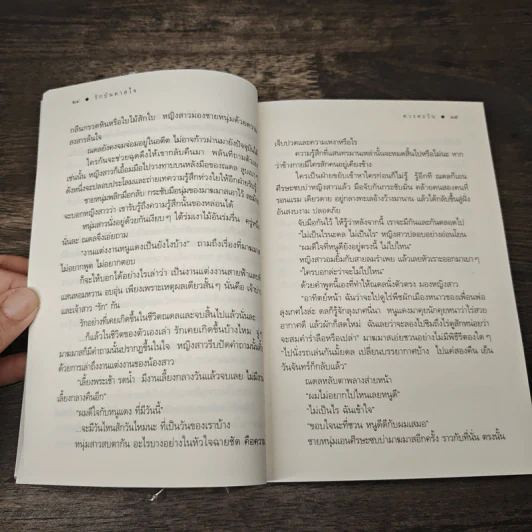 ๒๔ • รักบันดาลใจ
กลืนกรวดหินหรือใบไม้สักใบ หญิงสาวมองชายหนุ่มด้วยความ
สงสารคืนใจ
ณดลยังคงจมจ่อมอยู่ในอดีต ไม่อาจก้าวผ่านมายังปัจจุบันได้
ใครกันจะช่วยฉุดดึงให้เขากลับคืนมา พลันที่ถามตัวเอง
เช่นนั้น หญิงสาวก็เอื้อมมือไปวางทาบบนหลังมือของณดล
ดังหนึ่งจะปลอบประโลมและถ่ายเทความรู้สึกห่วงใยให้อีกฝ่ายรับรู้
ชายหนุ่มพลิกมือกลับ กระชับมือนุ่มของมาฆมาสเอาไว้
จะบอกหญิงสาวว่า เขารับรู้ถึงความรู้สึกนั้นของหล่อนได้
หนุ่มสาวนั่งอยู่ด้วยกันเงียบๆ ใต้ร่มเงาไม้อันร่มรื่น
นั่นละ ณดลจึงเอ่ยถาม
“งานแต่งงานหนูแดงเป็นยังไงบ้าง” ถามถึงเรื่องที่มาฆมาส
ไม่อยากพูด ไม่อยากตอบ
ก็จะให้บอกได้อย่างไรเล่าว่า เป็นงานแต่งงานสายฟ้าแลบ
แสนหอมหวาน อบอุ่น เพียงเพราะเหตุผลเดียวสั้นๆ นั่นคือ เจ้าบ่าว
และเจ้าสาว “รัก” กัน
รักอย่างที่เคยเกิดขึ้นในชีวิตณดลและจบสิ้นไปแล้วนั่นละ
...ก็แล้วในชีวิตของตัวเองเล่า รักเคยเกิดขึ้นบ้างไหม
มาฆมาสก็มีคำถามนั้นปรากฏขึ้นในใจ หญิงสาวรีบปัดคำถามนั้นทิ้ง
ด้วยการเล่าถึงงานแต่งงานของน้องสาว
“เลี้ยงพระเช้า รดน้ำ มีงานเลี้ยงกลางวันแล้วจบเลย ไม่มีงาน
เลี้ยงกลางคืนอีก”
“ผมดีใจกับหนูแดง ที่มีวันนี้”
...จะมีวันไหนสักวันไหมนะ ที่เป็นวันของเราบ้าง
หนุ่มสาวสบตากัน อะไรบางอย่างในหัวใจฉายชัด คือความ
ดวงตะวัน • ๒๕
เจ็บปวดและความเหงาหรือไร
ความรู้สึกที่แสนทรมานเหล่านั้นจะหมดสิ้นไปหรือไม่นะ หาก
ว่าข้างกายมีใครสักคนอยู่เคียงข้าง
ใครเป็นฝ่ายขยับเข้าหาใครก่อนก็ไม่รู้ รู้อีกที ณดลก็เอน
ศีรษะซบบ่าหญิงสาวแล้ว มือจับกันกระชับมั่น คล้ายคนสองคนที่
รอนแรม เดียวดาย อยู่กลางทะเลอ้างว้างมานาน แล้วได้กลับขึ้นสู่ฝั่ง
อันสงบงาม ปลอดภัย
จับมือกันไว้ ให้รู้ว่าหลังจากนี้ เราจะมีกันและกันตลอดไป
“ไม่เป็นไรนะดล ไม่เป็นไร” หญิงสาวปลอบอย่างอ่อนโยน
“ผมดีใจที่หนูดียังอยู่ตรงนี้ ไม่ไปไหน”
หญิงสาวอมยิ้มกับสายลมร่ำเพย แล้วเลยหัวเราะออกมาเบาๆ
“ใครบอกล่ะว่าจะไม่ไปไหน”
ด้วยคำพูดนี้เองที่ทำให้ณดลนั่งตัวตรง มองหญิงสาว
“อาทิตย์หน้า ฉันว่าจะไปดูไร่พืชผักเมืองหนาวของเพื่อนพ่อ
ลุงเกาไงล่ะ ดลก็รู้จักลุงเกานี่นา หนูแดงมาคุยนักคุยหนาว่าไร่สวย
อากาศดี แล้วผักก็สดใหม่ ฉันเลยว่าจะลองไปชิมถึงไร่ดูสักหน่อยว่า
จะสมคำร่ำลือหรือเปล่า” มาฆมาสชวนอย่างไม่มีพิธีรีตองใดๆ
“ไปนั่งรถเล่นกันมั้ยดล เปลี่ยนบรรยากาศบ้าง ไปแค่สองคืน เย็น
วันจันทร์ก็กลับแล้ว”
ณดลหลับตาพลางส่ายหน้า
“ผมไม่อยากไปไหนเลยหนูดี”
“ไม่เป็นไร ฉันเข้าใจ”
“ขอบใจนะที่ชวน หนูดีดีกับผมเสมอ”
ชายหนุ่มเอนศีรษะซบบ่ามาฆมาสอีกครั้ง ราวกับที่นั่น ตรงนั้น